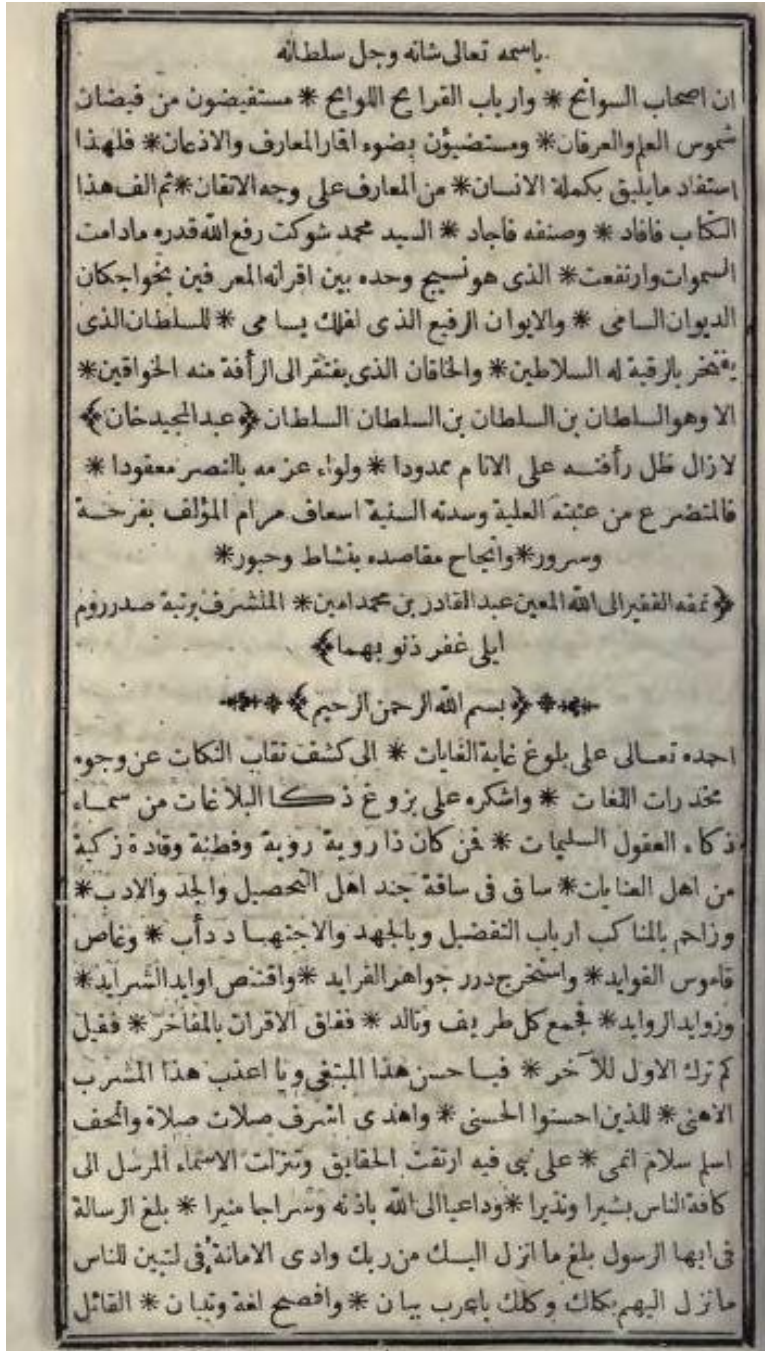 باسمه تعالى شانه وجل سلطانه
ان اصحاب السوانح * وارباب القرايح اللوايح * مستفيضون من فيضان
شموس العلم والعرفان * ومستضيؤن بضوء اقار المعارف والاذعان * فلهذا
استفاد مايليق بكملة الانسان * من المعارف على وجه الاتقان * ثم الف هذا
الكتاب فافاد * وصنفه فاجاد * السيد محمد شوكت رفع الله قدره مادامت
السموات وارتفعت * الذى هو نسيج وحده بين اقرانه المعرفين بخواجكان
الديوان السامى * والايوان الرفيع الذى لفلك يسامى * للسلطان الذى
يفتخر بالرقبة له السلاطين * والخاقان الذى يفتقر الى الرأفة منه الخواقين *
الا وهو السلطان بن السلطان بن السلطان السلطان ﴿عبد المجيد خان﴾
لازال ظل رأفته على الانام ممدودا * ولواء عزمه بالنصر معقودا *
فالمتضرع من عتبته العلية وسدته السنية اسعاف مرام المؤلف بفرحة
وسرور * وانجاح مقاصده بنشاط وحبور *
﴿نمقه الفقير الى الله المعين عبد القادر بن محمد امين * المتشرف برتبة صدر روم
ايلى غفر ذنوبهما﴾
﴿بسم الله الرحمن الرحيم﴾
احمده تعالى على بلوغ غاية الغايات * الى كشف نقاب النكات عن وجوه
مخدرات اللغات * واشكره على بزوغ ذكا البلاغات من سماء
ذكاء العقول السليمات * فمن كان ذا روية روية وفطنة وقادة زكية
من اهل العنايات * ساق فى ساقة جند اهل التحصيل والجد والادب *
وزاحم بالمناكب ارباب التفضيل وبالجهد والاجتهاد دأب * وغاص
قاموس الفوايد * واستخرج درر جواهر الفرايد * واقتنص اوابد الشرايد *
وزوايد الروايد * فجمع كل طريف وتالد * ففاق الاقران بالمفاخر * فقيل
كم ترك الاول للآخر * فيا حسن هذا المبتغى ويا اعذب هذا المشرب
الاهنى * للذين احسنوا الحسنى * واهدى اشرف صلات صلاة واتحف
اسلم سلام اتمى * على نبى فيه ارتقت الحقايق وتنزلت الاسماء المرسل الى
كافة الناس بشيرا ونذيرا * وداعيا الى الله باذنه وسراجا منيرا * بلغ الرسالة
فى ايها الرسول بلغ ما انزل اليك من ربك وادى الامانة فى لتبين للناس
ما نزل اليهم بكاك وكلك باعرب بيان * وافصح لغة وتبيان * القائل